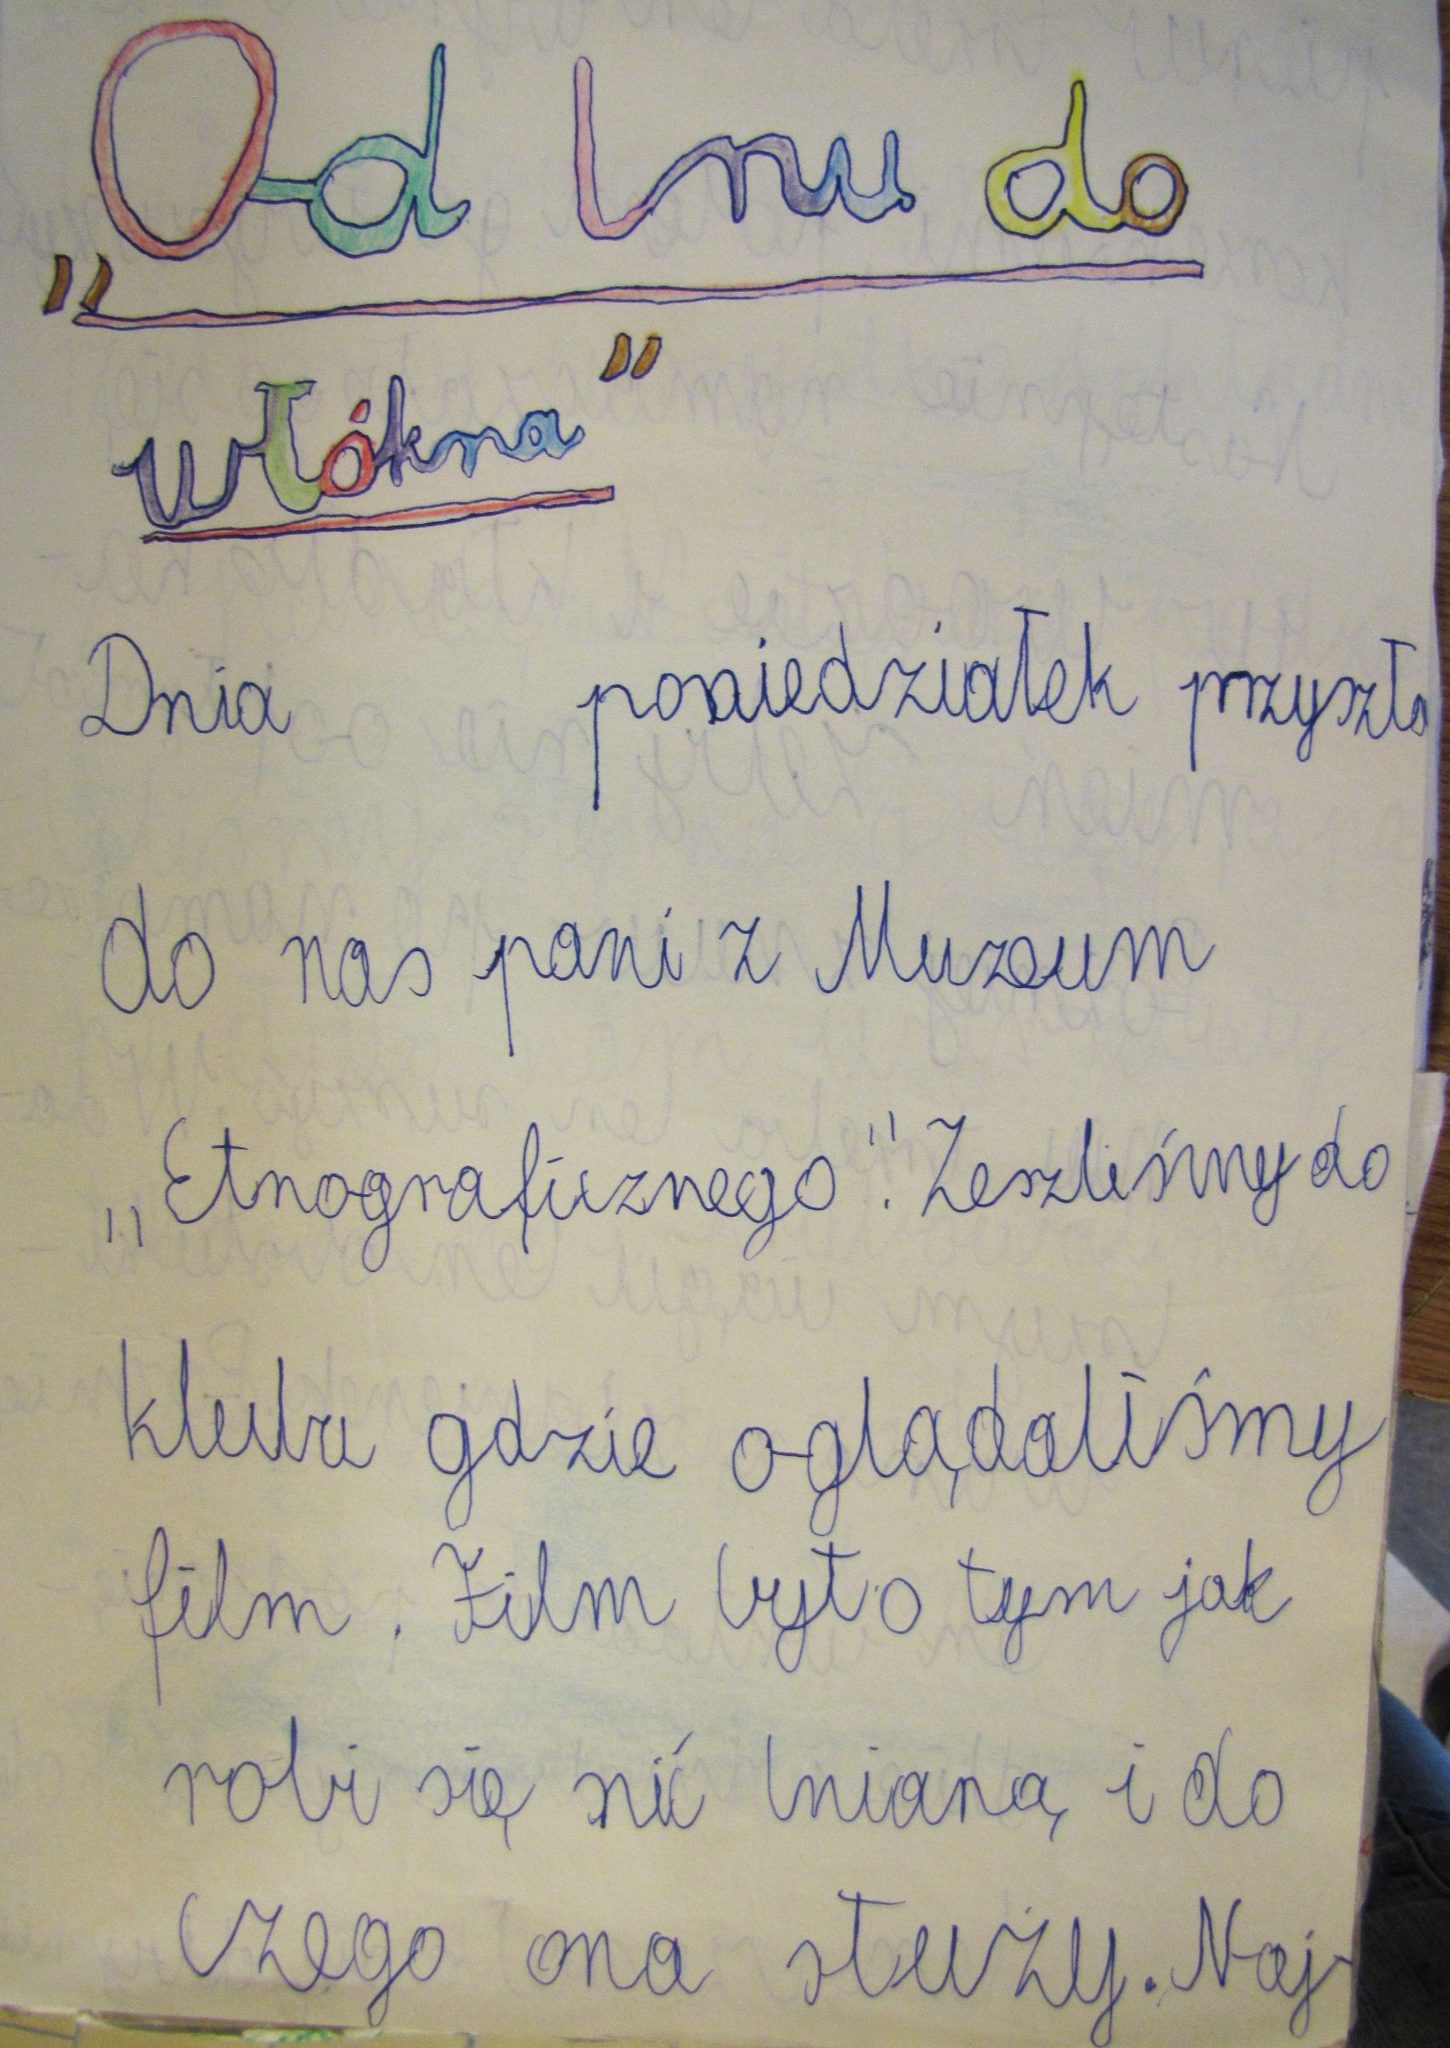 „Od lnu do
włókna"
Dnia poniedziałek przyszła
do nas pani z Muzeum
„Etnograficznego". Zeszliśmy do
klubu gdzie oglądaliśmy
film. Film był o tym jak
robi się nić lnianą i do
czego ona służy. Naj-